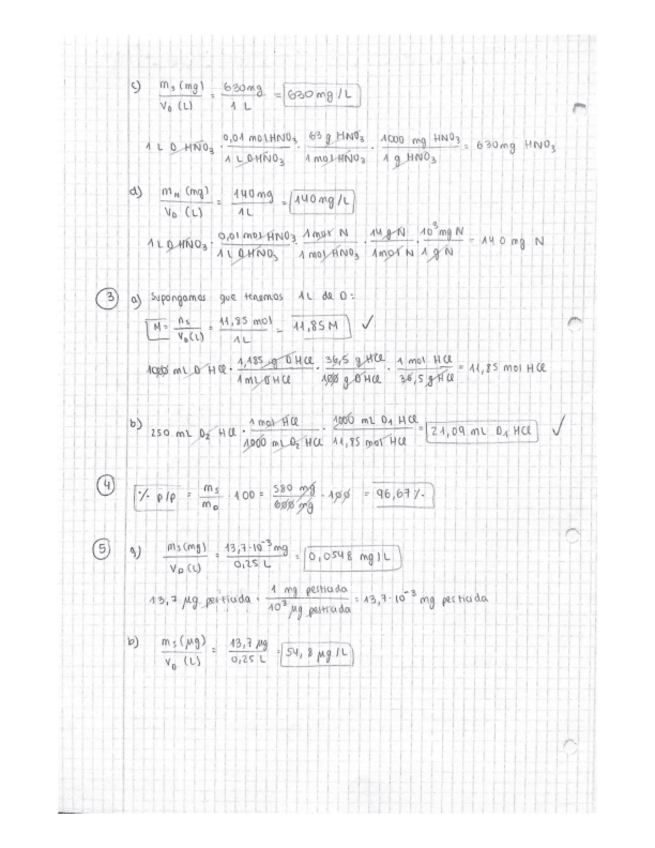 c) m_s (mg) / V_D (L) = 630mg / 1 L = 630 mg / L
1 L D HNO₃ · 0,01 mol HNO₃ / 1 L D HNO₃ · 63 g HNO₃ / 1 mol HNO₃ · 1000 mg HNO₃ / 1 g HNO₃ = 630mg HNO₃
d) m_N (mg) / V_D (L) = 140mg / 1L = 140mg/L
1 L D HNO₃ · 0,01 mol HNO₃ / 1 L D HNO₃ · 1 mol N / 1 mol HNO₃ · 14 g N / 1 mol N · 10³ mg N / 1 g N = 140 mg N
3 a) Supongamos que tenemos 1L de D:
M = n_s / V_D (L) = 11,85 mol / 1L = 11,85 M ✓
1000 mL D HCl · 1,185 g D HCl / 1 mL D HCl · 36,5 g HCl / 100 g D HCl · 1 mol HCl / 36,5 g HCl = 11,85 mol HCl
b) 250 mL D₂ HCl · 1 mol HCl / 1000 mL D₂ HCl · 1000 mL D₁ HCl / 11,85 mol HCl = 21,09 mL D₁ HCl ✓
4 % p/p = m_s / m_D · 100 = 580 mg / 600 mg · 100 = 96,67%
5 a) m_s (mg) / V_D (L) = 13,7·10⁻³ mg / 0,25 L = 0,0548 mg/L
13,7 µg pesticida · 1 mg pesticida / 10³ µg pesticida = 13,7·10⁻³ mg pesticida
b) m_s (µg) / V_D (L) = 13,7 µg / 0,25 L = 54,8 µg/L